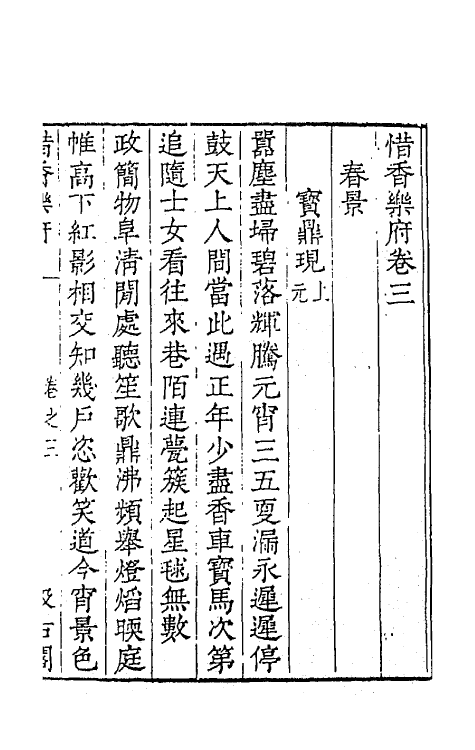 惜香樂府卷三
春景
寶鼎現上元
嚚塵盡埽碧落輝騰元宵三五更漏永遲遲停
鼓天上人間當此遇正年少盡香車寶馬次第
追隨士女看往來巷陌連甍簇起星毬無數
政簡物阜清閒處聽笙歌鼎沸頻舉燈熖暎庭
帷高下紅影相交知幾戶恣歡笑道今宵景色
惜香樂府 卷之三 汲古閣